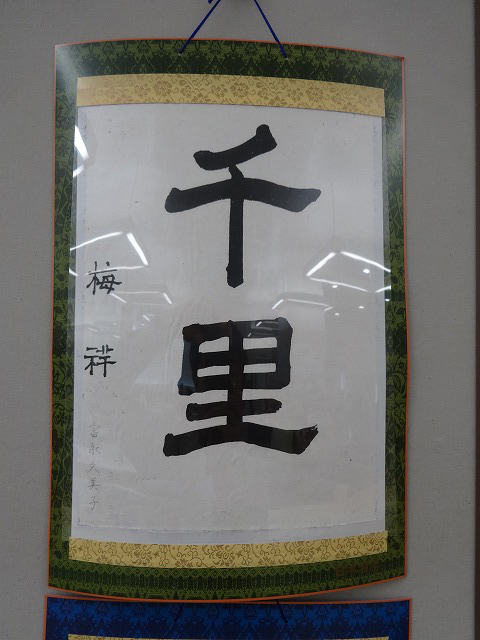 千里
梅祥
富永久美子